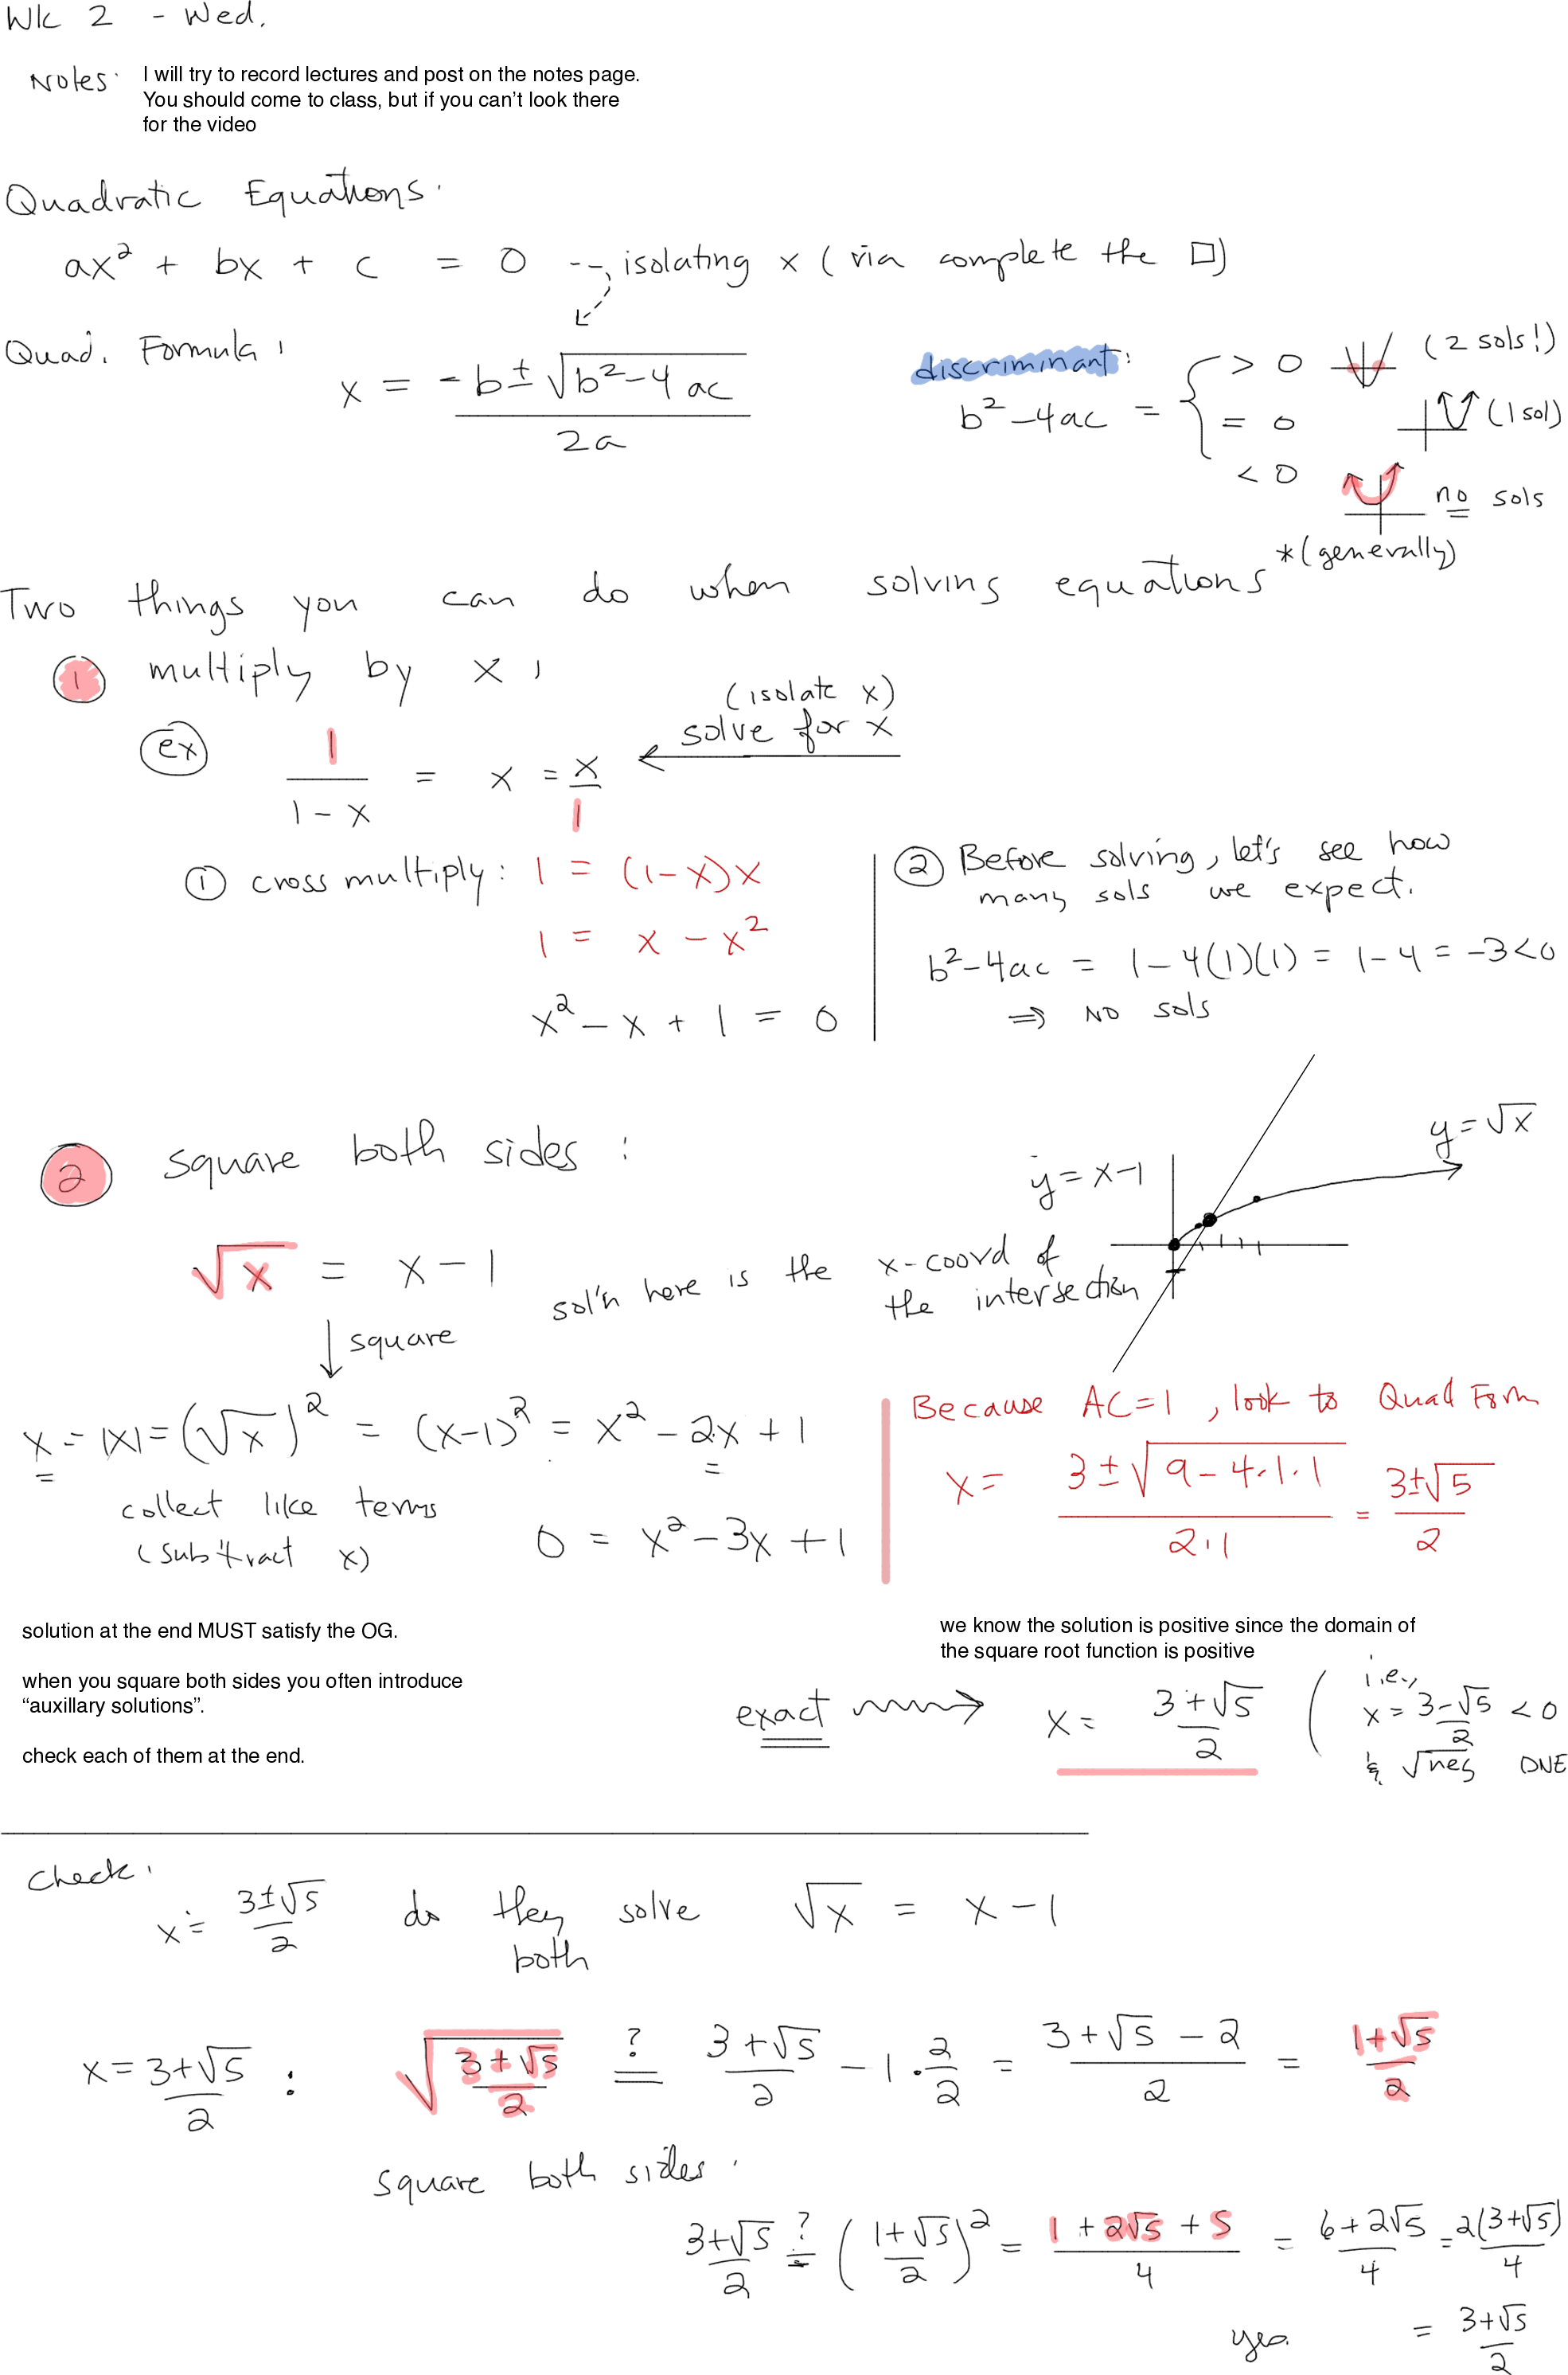 Wk 2 - Wed.
Notes: I will try to record lectures and post on the notes page.
You should come to class, but if you can't look there
for the video
Quadratic Equations:
ax² + bx + c = 0 --→ isolating x (via complete the □)
Quad. Formula: x = (-b ± √(b²-4ac)) / 2a
discriminant:
b²-4ac = { > 0 (2 sols!)
= 0 (1 sol)
< 0 no sols
Two things you can do when solving equations *(generally)
① multiply by x:
(isolate x)
ex 1/(1-x) = x = x/1 ← solve for x
① cross multiply: 1 = (1-x)x
1 = x - x²
x² - x + 1 = 0
② Before solving, let's see how
many sols we expect.
b²-4ac = 1-4(1)(1) = 1-4 = -3<0
⇒ NO sols
② square both sides:
y = x-1
y = √x
√x = x-1
sol'n here is the x-coord of
the intersection
↓ square
x = |x| = (√x)² = (x-1)² = x² - 2x + 1
collect like terms
(subtract x)
0 = x² - 3x + 1
Because AC=1, look to Quad Form
x = (3 ± √(9-4·1·1)) / 2·1 = (3±√5)/2
solution at the end MUST satisfy the OG.
when you square both sides you often introduce
“auxillary solutions”.
check each of them at the end.
we know the solution is positive since the domain of
the square root function is positive
exact → x = (3+√5)/2 ( i.e., x = (3-√5)/2 < 0
& √neg DNE
Check:
x = (3±√5)/2 do they both solve √x = x-1
x = (3+√5)/2 : √((3+√5)/2) ?= (3+√5)/2 - 1·2/2 = (3+√5-2)/2 = (1+√5)/2
square both sides:
(3+√5)/2 ?= ((1+√5)/2)² = (1+2√5+5)/4 = (6+2√5)/4 = 2(3+√5)/4
yes. = (3+√5)/2